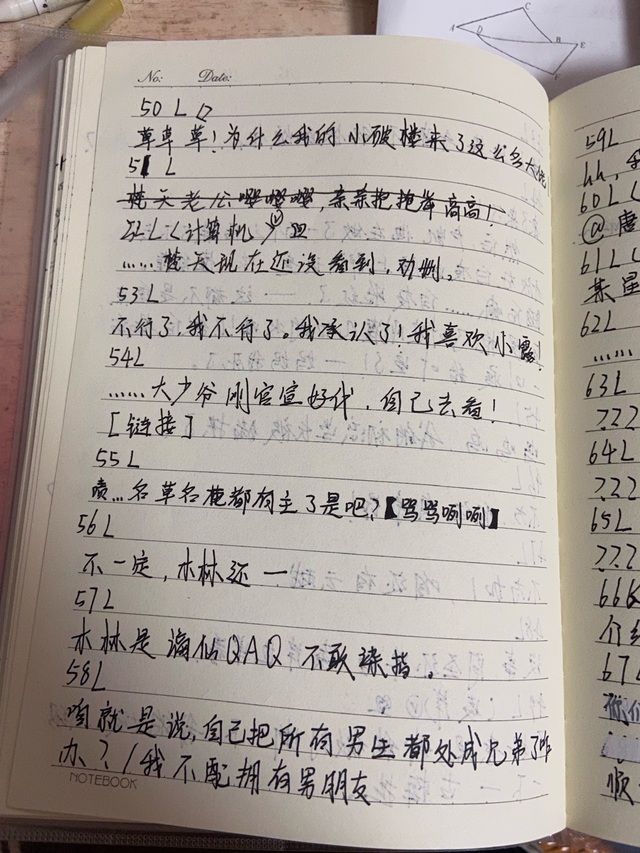 A
C
D
B
E
No:
Date:
50L
草草草!为什么我的小破楼来了这么多大佬
51L
梵天老公嘤嘤嘤,亲亲抱抱举高高!
52L(计算机)
……梵天现在还没看到,劝删。
53L
不行了,我不行了。我承认了!我喜欢小露!
54L
……大少爷刚官宣好伐,自己去看!
[链接]
55L
啧…名草名花都有主了是吧?【骂骂咧咧】
56L
不一定,木林还一
57L
木林是海仙QAQ不敢染指。
58L
咱就是说,自己把所有男生都处成兄弟了咋
办?/我不配拥有男朋友
NOTEBOOK
59L
hh,
60L(
@唐
61L(
某星
62L
……
63L
???
64L
???
65L
???
66L
介绍
67L
你们
顺